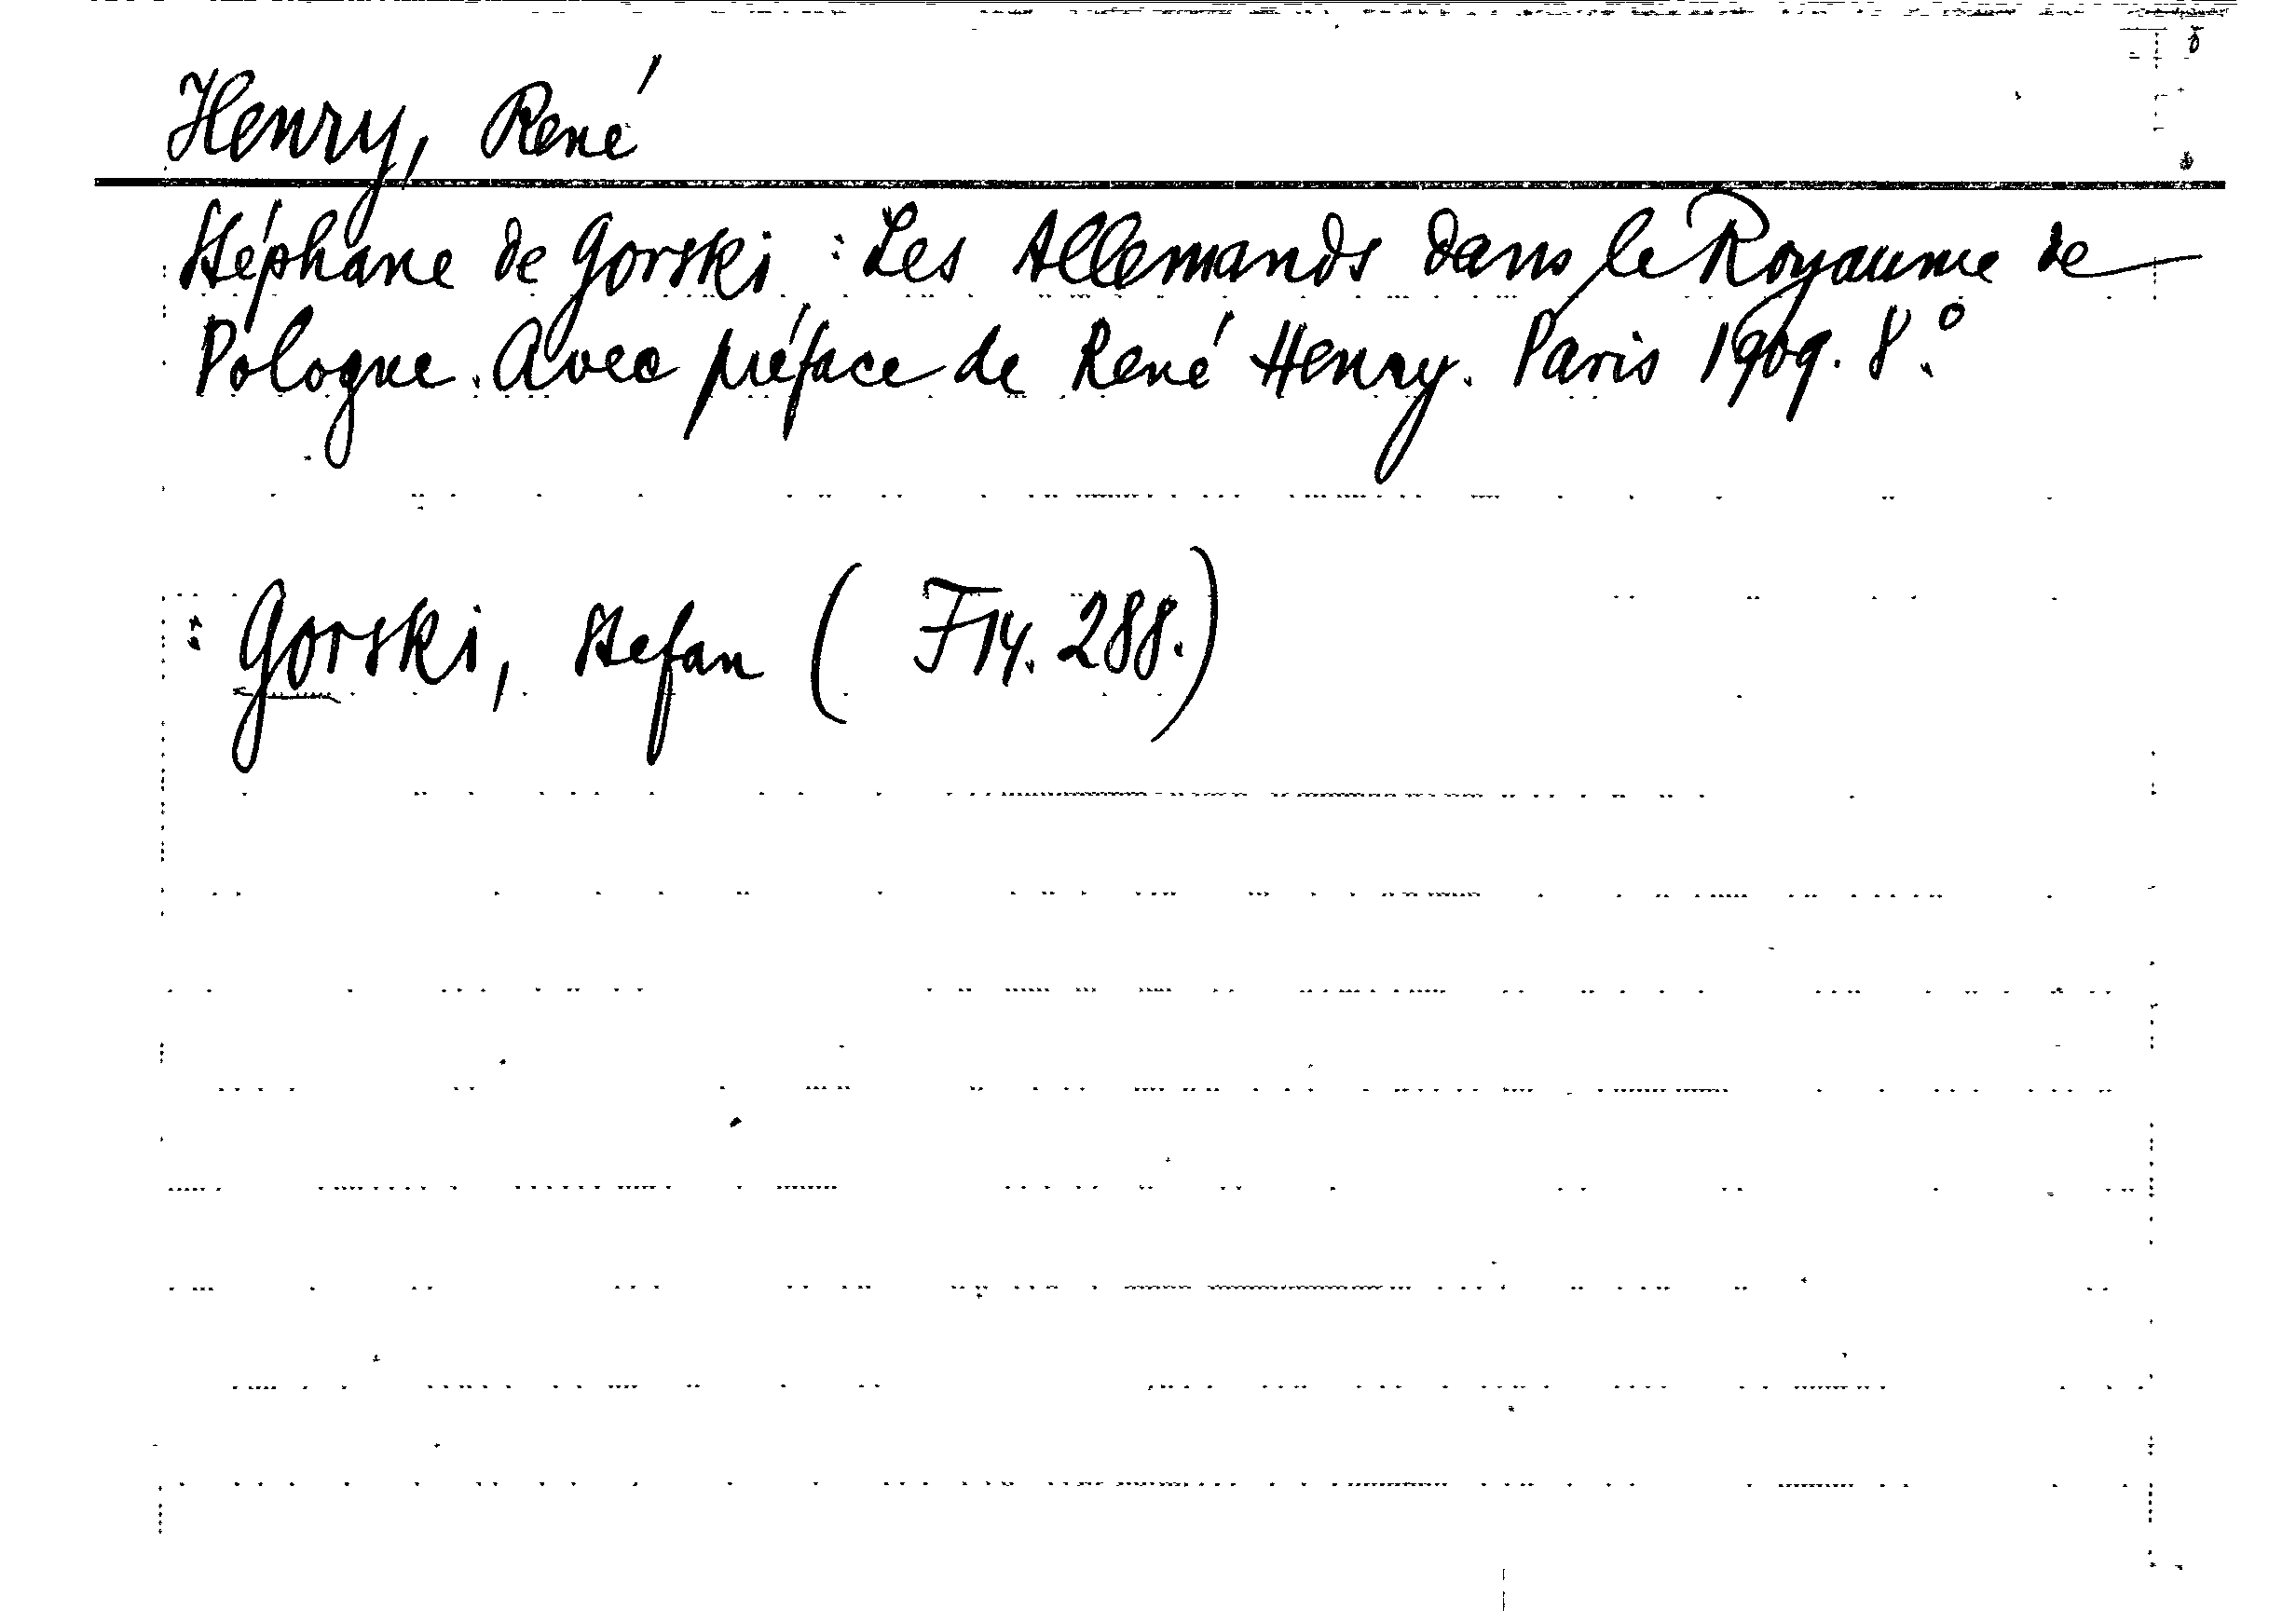 Henry, René
Stéphane de Gorski : Les Allemands dans le Royaume de
Pologne. Avec préface de René Henry. Paris 1909. 8.°
: Gorski, Stefan ( F14. 288.)